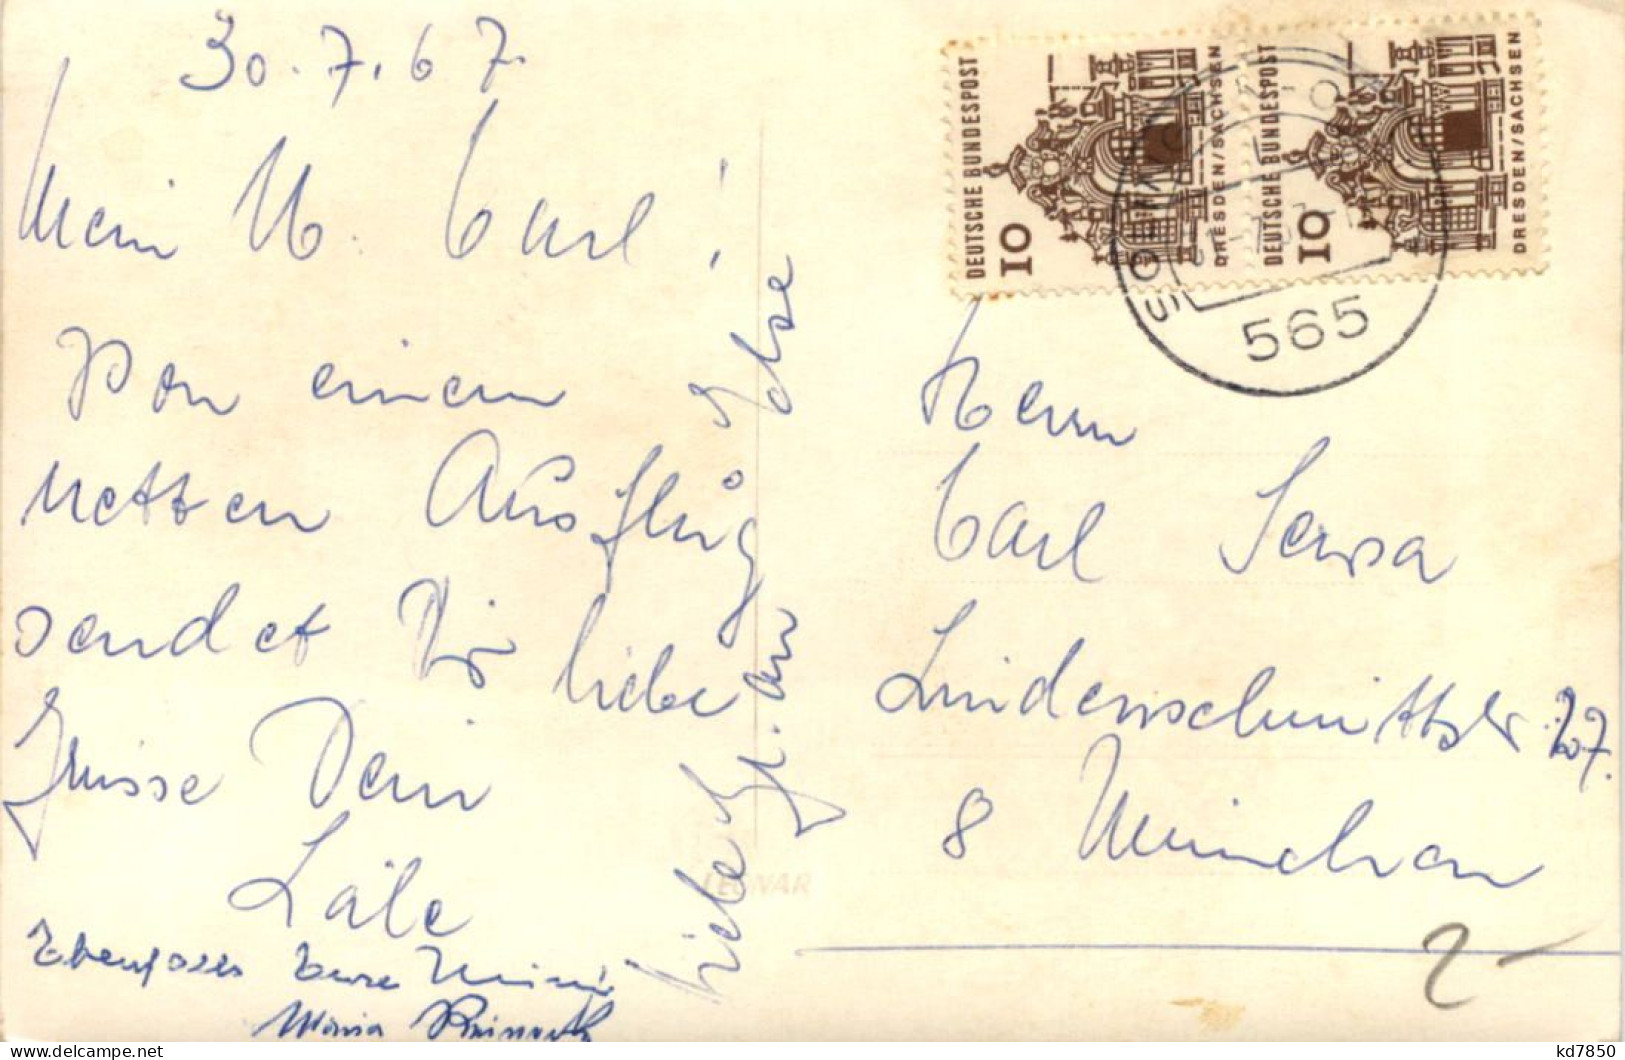 30.7.67.
Mein lb. Carl!
Von einem
netten Ausflug
sendet Dir liebe
Grüsse Dein
Lále
Ebenfalls Eure Mimi
Maria
liebe Gr. an Ilse
DEUTSCHE BUNDESPOST
10
DRESDEN/SACHSEN
DEUTSCHE BUNDESPOST
10
DRESDEN/SACHSEN
565
Herrn
Carl Sensa
Lindenschmittstr. 27.
8 München
LEONAR
2-
kd7850